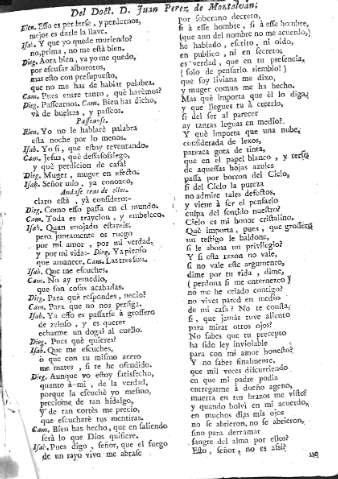 Del Doct. D. Juan Perez de Montalvàn.
Elen. Esso es perderse, y perdernos,
mejor es darla la llave.
Isab. Y que yo quede muriendo?
no, prima, no me està bien.
Dieg. Aora bien, ya yo me quedo,
por escusar alborotos,
mas esto con presupuesto,
que no nos has de hablar palabra.
Cam. Pues entre tanto, què harèmos?
Dieg. Passearnos. Cam. Bien has dicho,
và de bueltas, y passeos.
Passeanse.
Elen. Yo no le hablarè palabra
esta noche por lo menos.
Isab. Yo sì, que estoy reventando.
Cam. Jesus, què desassossiego,
y què perdicion de casa!
Dieg. Muger, muger en efecto.
Isab. Señor mio, ya conozco,
Andase tras de ellos.
claro està, yà considero:
Dieg. Como esso passa en el mundo.
Cam. Toda es traycion, y embeleco.
Isab. Que estarèis enojado
pero juntamente os ruego
por mi amor, por mi verdad,
y por mi vida- Dieg. Ya pienso
que amanece. Cam. Lastressson.
Isab. Que me escuches.
Cam. No ay remedio,
que son cosas acabadas.
Dieg. Para què respondes, necio?
Cam. Para que no nos persiga.
Isab. Ya esso es passarse à grossero
de zeloso, y es querer
echarme un dogal al cuello.
Dieg. Pues què quieres?
Isab. Que me escuches,
ò que con tu mismo acero
me mates, si te he ofendido.
Dieg. Aunque yo estoy satisfecho,
quanto à mì, de la verdad,
porque la escuchè yo mesmo,
precíome de tan hidalgo,
y de tan cortès me precio,
que escucharè tus mentiras.
Cam. Bien has hecho, que en saliendo
serà lo que Dios quisiere.
Isab. Pues digo, señor, que el fuego
de un rayo vivo me abrase
por soberano decreto,
si à esse hombre, si à esse hombre,
(que aun del nombre no me acuerdo)
he hablado, escrito, ni oìdo,
en publico, ni en secreto:
es verdad, que en tu presencia,
(solo de pensarlo tiemblo!)
que soy liviana me dixo,
y muger comun me ha hecho.
Mas què importa que èl lo diga,
y que llegues tù à creerlo,
si del ser al parecer
ay tantas leguas en medio?
Y què importa que una nube,
considerada de lexos,
parezca gota de tinta,
que en el papel blanco, y terso
de aquestas hojas azules
passa por borron del Cielo,
si del Cielo la pureza
no admite tales defectos,
y viene à ser el pensarlo
culpa del sentido nuestro?
Cielo es mi honor cristalino.
Què importa, pues, que grossero
un testigo le baldone,
si le abona un privilegio?
Y si esta razon no vale,
si no vale este argumento,
dime por tu vida, dime,
(perdona si me enternezco)
no me he criado contigo?
no vives pared en medio
de mi casa? No te consta,
si, que jamàs tuve aliento
para mirar otros ojos?
No sabes que tu precepto
ha sido ley inviolable
para con mi amor honesto?
Y no sabes finalmente,
que mil veces discurriendo
en que mi padre podia
entregarme à dueño ageno,
muerta en tus brazos me viste?
y quando bolvì en mi acuerdo,
en muchos dias mis ojos
no se abrieron, se abrieron,
sino para derramar
sangre del alma por ellos?
Esto, señor, no es assi?